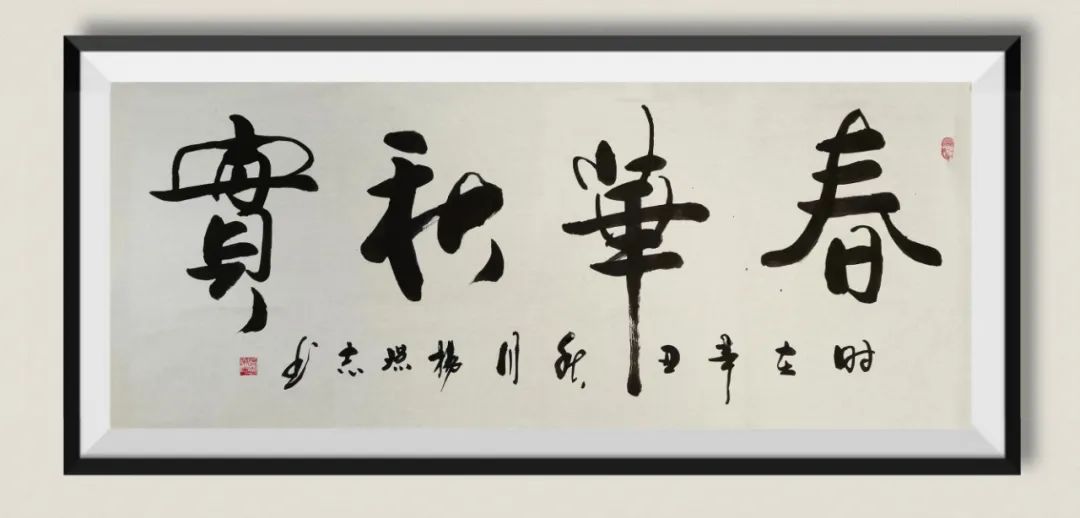 春華秋實
时在辛丑秋月楊照志书